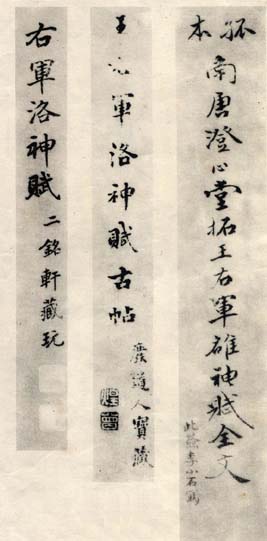 孤本
南唐澄心堂拓王右軍雒神賦全文
此簽李小石
王右軍洛神賦古帖
道人寶藏
右軍洛神賦
二銘軒藏玩